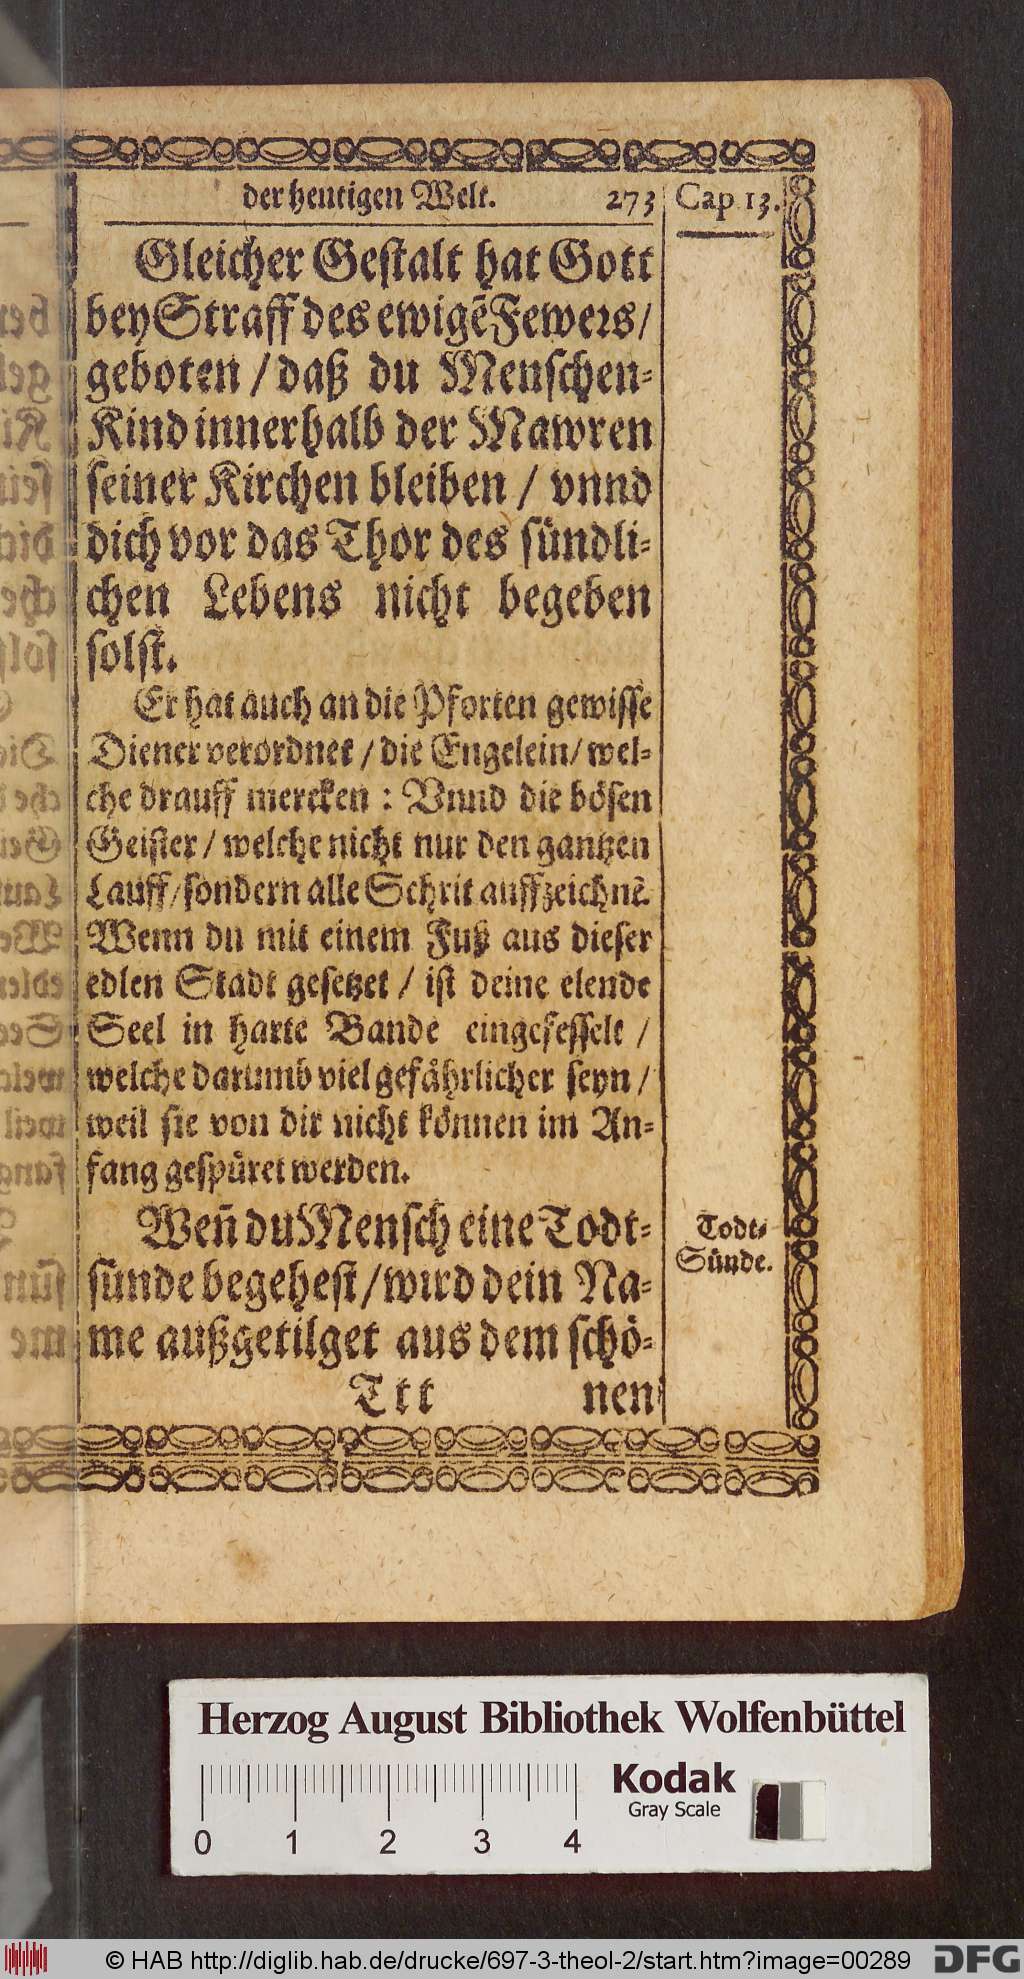 der heutigen Welt. 273 Cap 13.
Gleicher Gestalt hat Gott
bey Straff des ewigẽ Fewers/
geboten / daß du Menschen-
Kind innerhalb der Mawren
seiner Kirchen bleiben / vnnd
dich vor das Thor des sündli-
chen Lebens nicht begeben
solst.
Er hat auch an die Pforten gewisse
Diener verordnet / die Engelein/ wel-
che drauff mercken : Vnnd die bösen
Geister / welche nicht nur den gantzen
Lauff/ sondern alle Schrit auffzeichnẽ.
Wenn du mit einem Fuß aus dieser
edlen Stadt gesetzet / ist deine elende
Seel in harte Bande eingefesselt /
welche darumb viel gefährlicher seyn /
weil sie von dir nicht können im An-
fang gespüret werden.
Weñ du Mensch eine Todt-
sünde begehest / wird dein Na-
me außgetilget aus dem schö-
Ttt nen
Todt-
Sünde.
Herzog August Bibliothek Wolfenbüttel
Kodak
Gray Scale
0 1 2 3 4
© HAB http://diglib.hab.de/drucke/697-3-theol-2/start.htm?image=00289
DFG